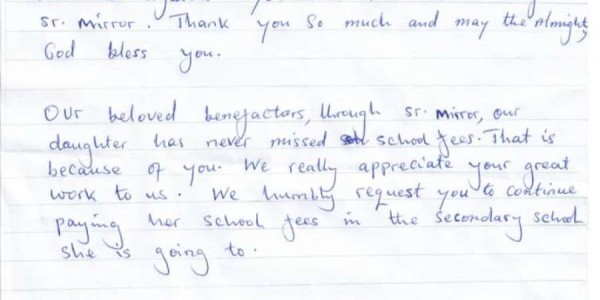 sr. mirror. Thank you so much and may the Almighty
God bless you.
Our beloved benefactors, through sr. mirror, our
daughter has never missed school fees. That is
because of you. We really appreciate your great
work to us. We humbly request you to continue
paying her school fees in the secondary school
she is going to.